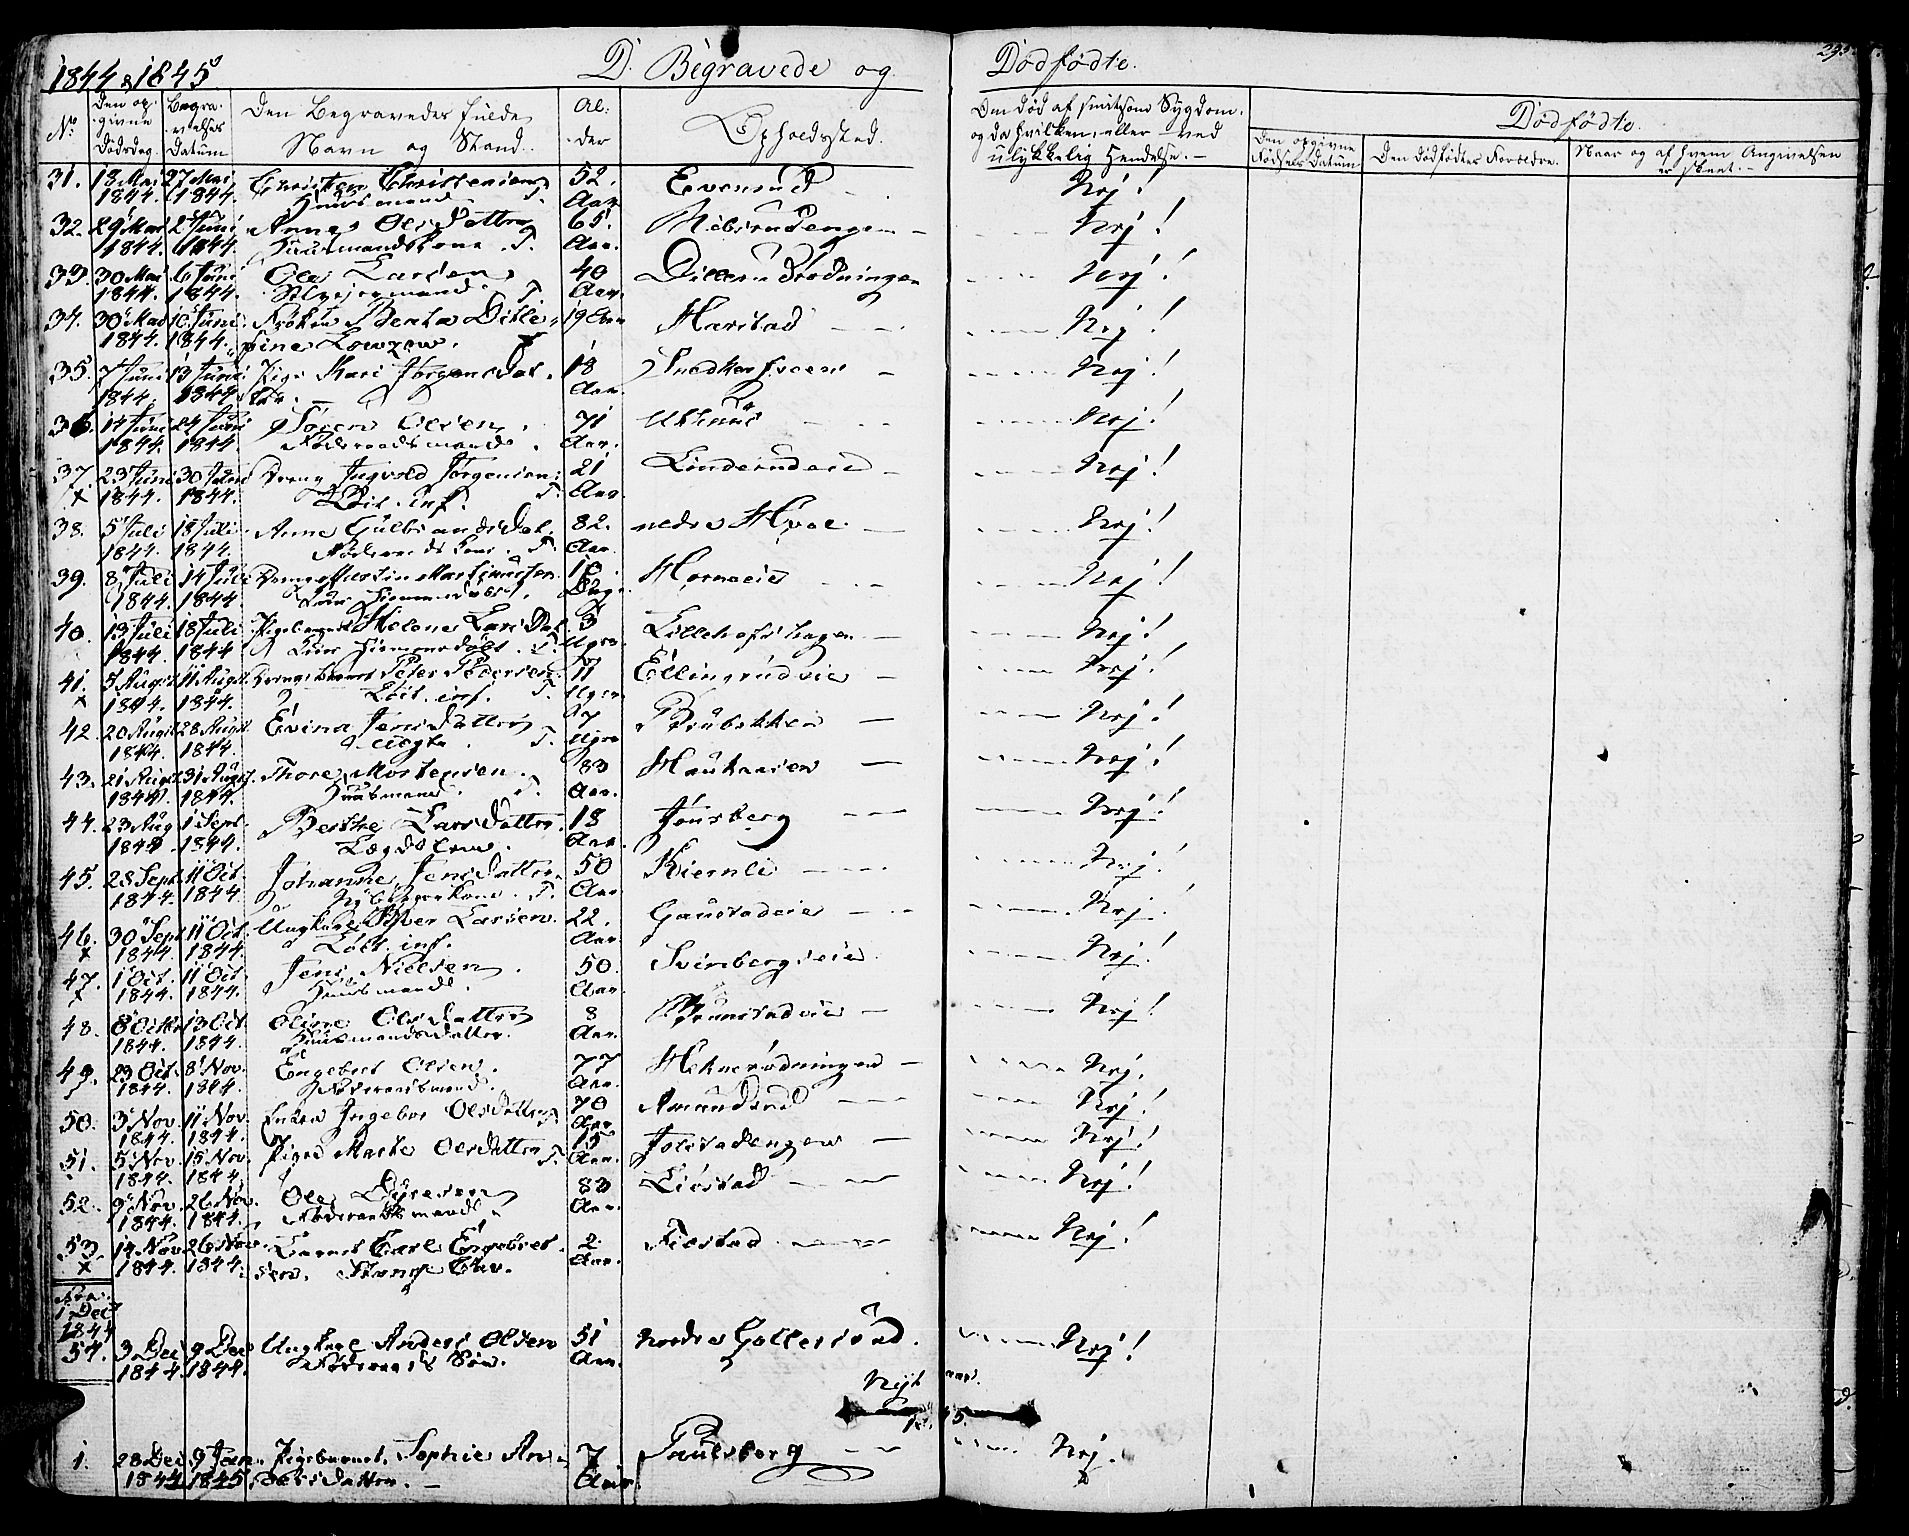 1844 & 1845 D. Begravede og Dødfødte. 295
No
Den opgivne Dødsdag. Begravelses Datum Den Begravedes fulde Navn og Stand. Alder Opholdssted. Om død af smitsom Sygdom, og da hvilken, eller ved ulykkelig Hendelse. — Dødfødte.
Den opgivne Fødsels Datum Den dødfødtes Forældre. Naar og af hvem Angivelsen er skeet. —
31. 18 Mai 27 Mai Christen Christensen 52. Evensrud Nej!
1844. 1844. Huusmand Aar
32. 29 Mai 2 Juni Anne Olsdatter 65. Nej!
1844. 1844. Huusmandskone. T. Aar.
33. 30 Mai 6 Juni Ole Larsen 40 Nej!
1844. 1844. T Aar.
34. 30 Mai 10 Juni Frøken Bentha Ditle- 19 Aar Harstad Nej!
1844. 1844. fine Lowzow.
35. 7 Juni 13 Juni Pige Kari Jørgensdat- 18 Nej!
1844. 1844 ter. Aar.
36. 14 Juni 24 Juni Søren Olsen 71 Nej!
1844. 1844 Føderaadsmand. Aar.
37. 23 Juni 30 Juni Dreng Ingvold Jørgensen 21 Linderudeie Nej!
x 1844. 1844. Løit. inf. T. Aar.
38. 5 Juli 18 Juli Anne Gulbrandsdat. 82. nedre Hval Nej!
1844. 1844. Føderaads Kone. T. Aar.
39. 8 Juli 14 Juli Martin Martinusen Horneeie Nej!
1844. 1844. Hjemmedøbt. Dage
40. 13 Juli 18 Juli Pigebarnet Helene Larsdat. 3 Lillehofshagen Nej!
1844. 1844 Hjemmedøbt. T. Ugers
41. 5 August 11 August Drengebarnet Peter Pedersen 11 Ellingsrudeie Nej!
x 1844. 1844. Løit. inf. T. Uger
42. 20 August 28 August Evina Jensdatter 7 Brubekken Nej!
1844. 1844. Uægte. T. Ugers
43. 21 August 31 August Thore Mortensen. 83 Nej!
1844 1844. Huusmand. T. Aar.
44. 23 Aug 1 Sept. Berthe Larsdatter. 18 Fòusberg Nej!
1844. 1844. Lægdslem. Aar.
45. 28 Sept 11 Oct. Johanne Jensdatter 50 Kiernli Nej!
1844. 1844. T. Aar
46. 30 Sept 11 Oct. Ungkarl Iver Larsen. 22. Gaustadeie Nej!
x 1844. 1844. Løit. inf. Aar.
47. 1 Oct. 11 Oct. Jens Nielsen. 50. Svinbergseie Nej!
x 1844. 1844. Huusmand. Aar.
48. 8 Octbr 13 Oct. Oline Olsdatter 8 Brunstadeie Nej!
1844. 1844. Huusmandsdatter. Aar.
49. 23 Oct. 8 Nov. Engebret Olsen. 77 Nej.
1844. 1844. Føderaadsmand. Aar.
50. 3 Nov. 11 Nov. Enken Ingebor Olsdatter 70 Amundrud Nej!
1844. 1844. Aar
51. 5 Nov. 15 Nov. Pige Marthe Olsdatter T. 15 Jolstadengen Nej!
1844. 1844. Aar.
52. 9 Nov. 26 Nov. Ole 83 Liòstad Nej!
1844. 1844. Føderaadsmand. Aar.
53. 14 Nov 26 Nov. Barnet Carl Engebret- 2. Fiòstad Nej!
x 1844. 1844. sen. Aar.
Fra 1 Dec 1844
54. 3 Dec 9 Dec Ungkarl Anders Olsen 51 nordre Nej!
1844. 1844. Føderaads Søn. Aar.
Nyt aar.
1845.
1. 28 Dec 9 Jan. Pigebarnet. Sophie An- 7 Paulsberg Nej.
1844 1845 dersdatter. — Aar.